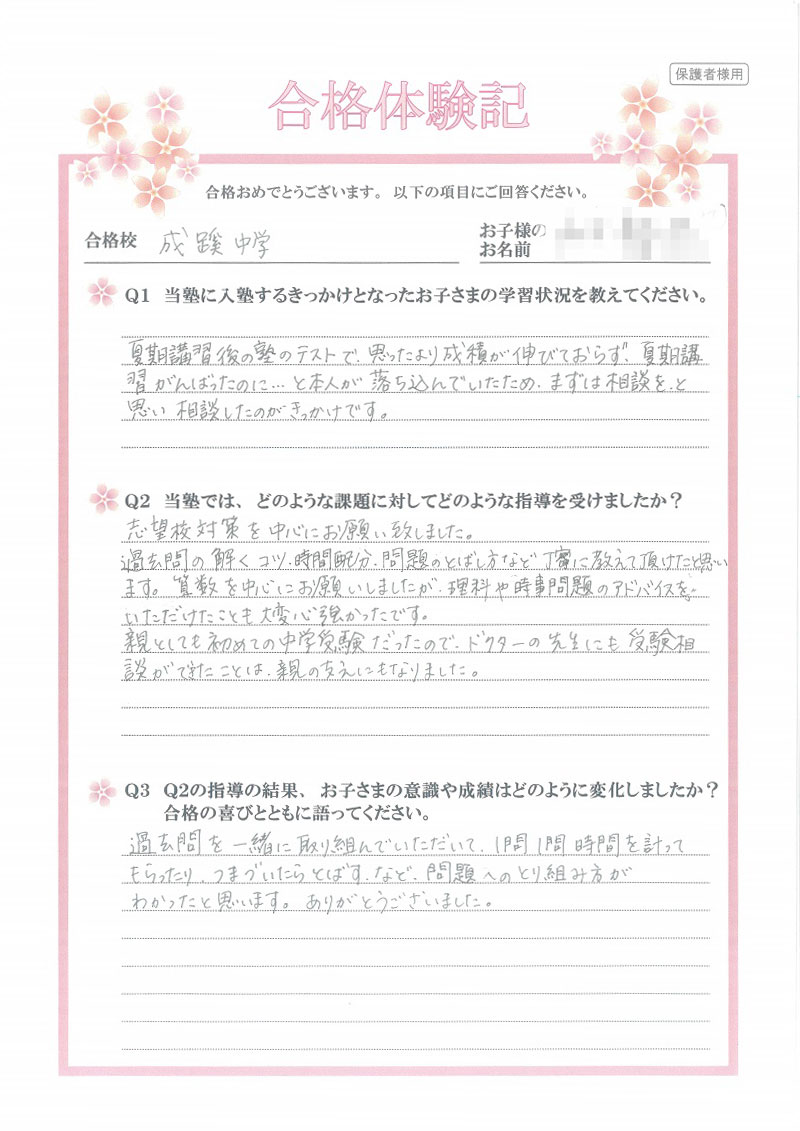 保護者様用
合格体験記
合格おめでとうございます。 以下の項目にご回答ください。
合格校 成蹊中学
お子様の
お名前
Q1 当塾に入塾するきっかけとなったお子さまの学習状況を教えてください。
夏期講習後の塾のテストで、思ったより成積が伸びておらず、夏期講
習がんばったのに…と本人が落ち込んでいたため、まずは相談を、と
思い相談したのがきっかけです。
Q2 当塾では、どのような課題に対してどのような指導を受けましたか？
志望校対策を中心にお願い致しました。
過去問の解くコツ、時間配分、問題のとばし方など丁寧に教えて頂けたと思い
ます。算数を中心にお願いしましたが、理科や時事問題のアドバイスを
いただけたことも大変心強かったです。
親としても初めての中学受験だったので、ドクターの先生にも受験相
談ができたことは、親の支えにもなりました。
Q3 Q2の指導の結果、お子さまの意識や成績はどのように変化しましたか？
合格の喜びとともに語ってください。
過去問を一緒に取り組んでいただいて、1問1問時間を計って
もらったり、つまづいたらとばす、など、問題へのとり組み方が
わかったと思います。ありがとうございました。